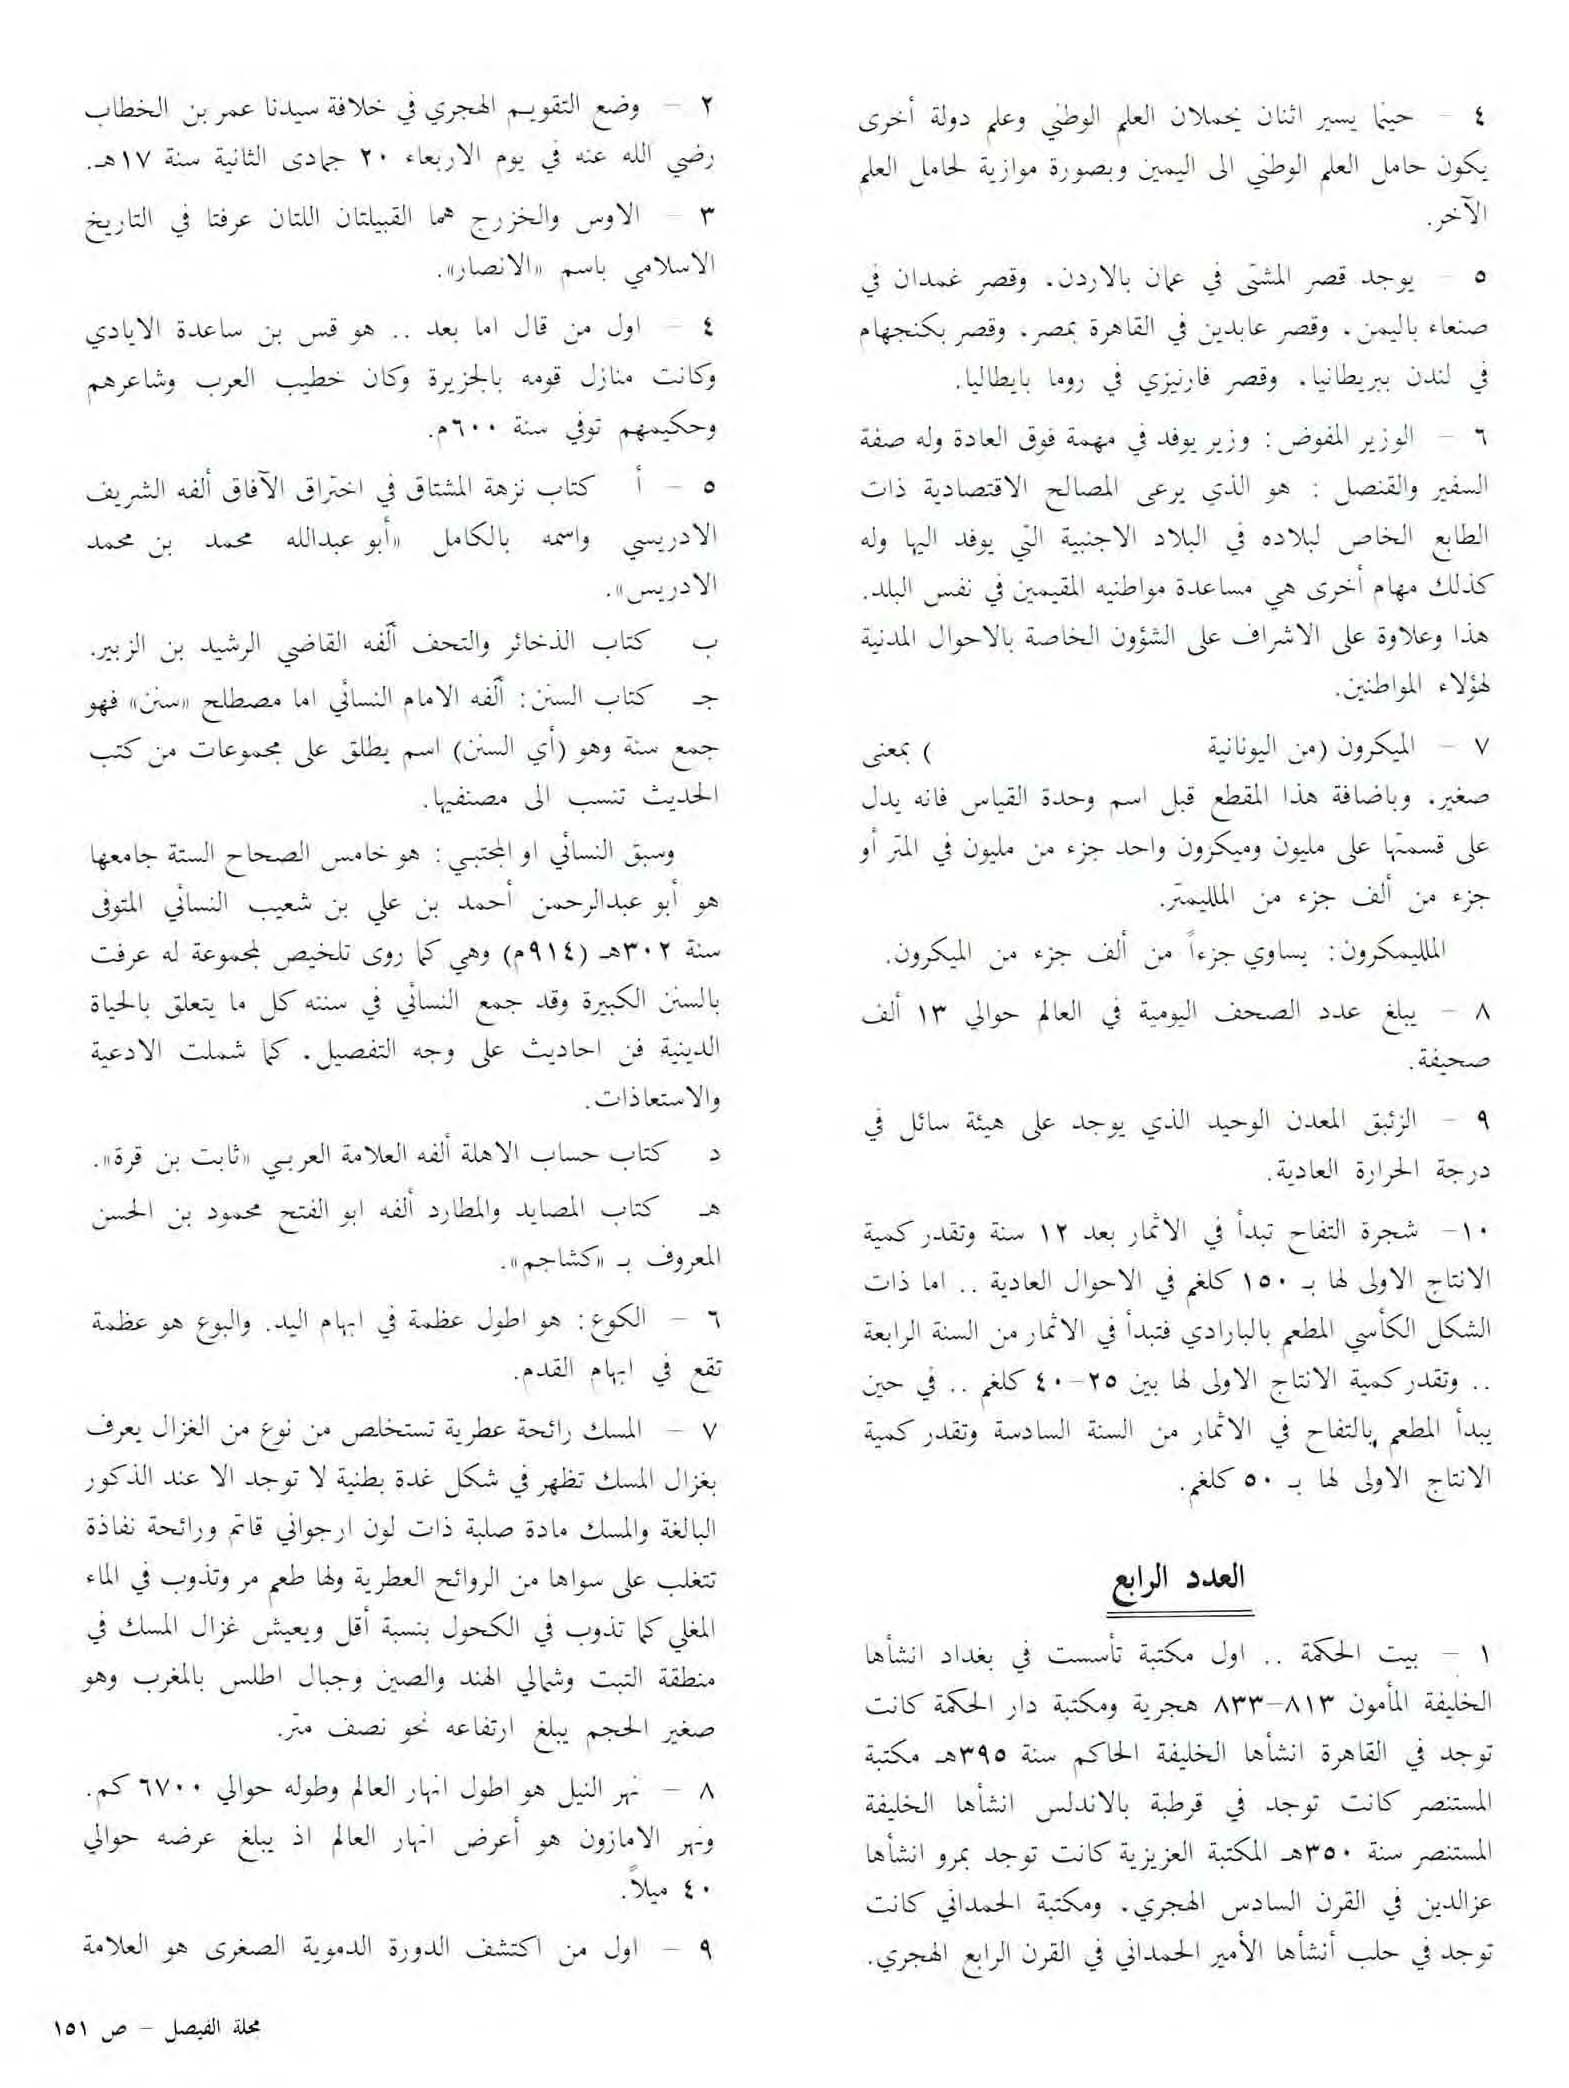 ٤ – حينما يسير اثنان يحملان العلم الوطني وعلم دولة أخرى
يكون حامل العلم الوطني الى اليمين وبصورة موازية لحامل العلم
الآخر.
٥ – يوجد قصر المشتى في عمان بالاردن، وقصر غمدان في
صنعاء باليمن، وقصر عابدين في القاهرة بمصر، وقصر بكنجهام
في لندن ببريطانيا، وقصر فارنيزي في روما بايطاليا.
٦ – الوزير المفوض: وزير يوفد في مهمة فوق العادة وله صفة
السفير والقنصل: هو الذي يرعى المصالح الاقتصادية ذات
الطابع الخاص لبلاده في البلاد الاجنبية التي يوفد اليها وله
كذلك مهام أخرى هي مساعدة مواطنيه المقيمين في نفس البلد.
هذا وعلاوة على الاشراف على الشؤون الخاصة بالاحوال المدنية
لهؤلاء المواطنين.
٧ – الميكرون (من اليونانية ) بمعنى
صغير، وباضافة هذا المقطع قبل اسم وحدة القياس فانه يدل
على قسمتها على مليون وميكرون واحد جزء من مليون في المتر أو
جزء من ألف جزء من الملليمتر.
الملليمكرون: يساوي جزءاً من ألف جزء من الميكرون.
٨ – يبلغ عدد الصحف اليومية في العالم حوالي ١٣ ألف
صحيفة.
٩ – الزئبق المعدن الوحيد الذي يوجد على هيئة سائل في
درجة الحرارة العادية.
١٠– شجرة التفاح تبدأ في الاثمار بعد ١٢ سنة وتقدر كمية
الانتاج الاولى لها بـ ١٥٠ كلغم في الاحوال العادية .. اما ذات
الشكل الكأسي المطعم بالبارادي فتبدأ في الاثمار من السنة الرابعة
.. وتقدر كمية الانتاج الاولى لها بين ٢٥–٤٠ كلغم .. في حين
يبدأ المطعم بالتفاح في الاثمار من السنة السادسة وتقدر كمية
الانتاج الاولى لها بـ ٥٠ كلغم.
العدد الرابع
١ – بيت الحكمة .. اول مكتبة تأسست في بغداد انشأها
الخليفة المأمون ٨١٣–٨٣٣ هجرية ومكتبة دار الحكمة كانت
توجد في القاهرة انشأها الخليفة الحاكم سنة ٣٩٥هـ مكتبة
المستنصر كانت توجد في قرطبة بالاندلس انشأها الخليفة
المستنصر سنة ٣٥٠هـ المكتبة العزيزية كانت توجد بمرو انشأها
عزالدين في القرن السادس الهجري، ومكتبة الحمداني كانت
توجد في حلب أنشأها الأمير الحمداني في القرن الرابع الهجري.
٢ – وضع التقويم الهجري في خلافة سيدنا عمر بن الخطاب
رضي الله عنه في يوم الاربعاء ٢٠ جمادى الثانية سنة ١٧هـ.
٣ – الاوس والخزرج هما القبيلتان اللتان عرفتا في التاريخ
الاسلامي باسم «الانصار».
٤ – اول من قال اما بعد .. هو قس بن ساعدة الايادي
وكانت منازل قومه بالجزيرة وكان خطيب العرب وشاعرهم
وحكيمهم توفي سنة ٦٠٠م.
٥ – أ كتاب نزهة المشتاق في اختراق الآفاق ألفه الشريف
الادريسي واسمه بالكامل «أبو عبدالله محمد بن محمد
الادريس».
ب كتاب الذخائر والتحف ألّفه القاضي الرشيد بن الزبير.
جـ كتاب السنن: ألّفه الامام النسائي اما مصطلح «سنن» فهو
جمع سنة وهو (أي السنن) اسم يطلق على مجموعات من كتب
الحديث تنسب الى مصنفيها.
وسبق النسائي او المجتبي: هو خامس الصحاح الستة جامعها
هو أبو عبدالرحمن أحمد بن علي بن شعيب النسائي المتوفى
سنة ٣٠٢هـ (٩١٤م) وهي كما روى تلخيص لمجموعة له عرفت
بالسنن الكبيرة وقد جمع النسائي في سننه كل ما يتعلق بالحياة
الدينية فن احاديث على وجه التفصيل، كما شملت الادعية
والاستعاذات.
د كتاب حساب الاهلة ألفه العلامة العربي «ثابت بن قرة».
هـ كتاب المصايد والمطارد ألفه ابو الفتح محمود بن الحسن
المعروف بـ «كشاجم».
٦ – الكوع: هو اطول عظمة في ابهام اليد. والبوع هو عظمة
تقع في ابهام القدم.
٧ – المسك رائحة عطرية تستخلص من نوع من الغزال يعرف
بغزال المسك تظهر في شكل غدة بطنية لا توجد الا عند الذكور
البالغة والمسك مادة صلبة ذات لون ارجواني قاتم ورائحة نفاذة
تتغلب على سواها من الروائح العطرية ولها طعم مر وتذوب في الماء
المغلي كما تذوب في الكحول بنسبة أقل ويعيش غزال المسك في
منطقة التبت وشمالي الهند والصين وجبال اطلس بالمغرب وهو
صغير الحجم يبلغ ارتفاعه نحو نصف متر.
٨ – نهر النيل هو اطول انهار العالم وطوله حوالي ٦٧٠٠ كم.
ونهر الامازون هو أعرض انهار العالم اذ يبلغ عرضه حوالي
٤٠ ميلاً.
٩ – اول من اكتشف الدورة الدموية الصغرى هو العلامة
مجلة الفيصل – ص ١٥١